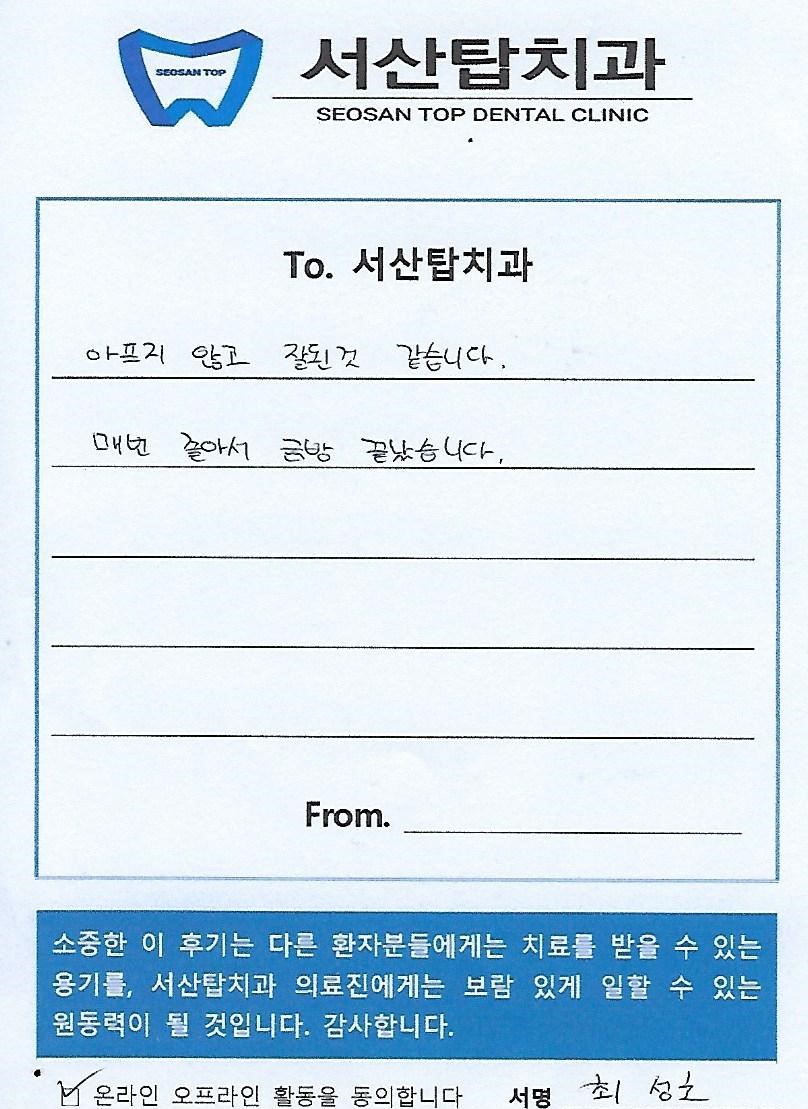 SEOSAN TOP
서산탑치과
SEOSAN TOP DENTAL CLINIC
To. 서산탑치과
아프지 않고 잘된것 같습니다.
매번 졸아서 금방 끝났습니다.
From.
소중한 이 후기는 다른 환자분들에게는 치료를 받을 수 있는
용기를, 서산탑치과 의료진에게는 보람 있게 일할 수 있는
원동력이 될 것입니다. 감사합니다.
온라인 오프라인 활동을 동의합니다 서명 최성호